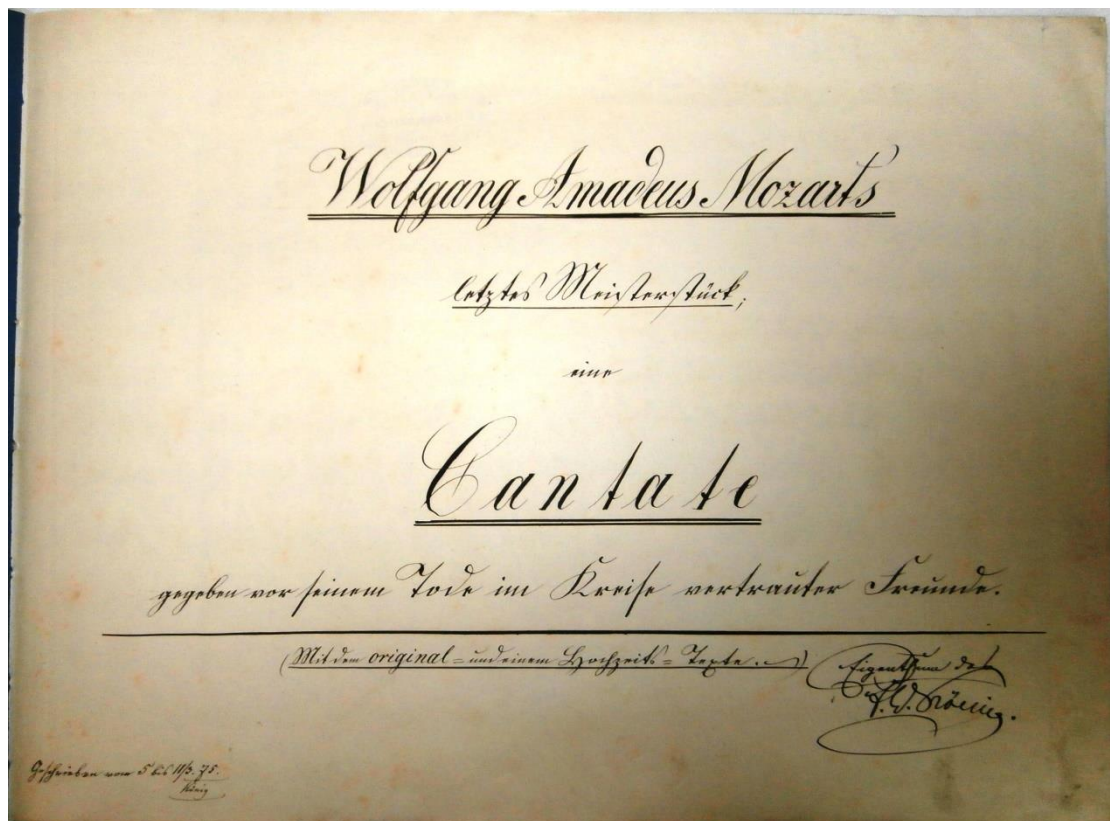 Wolfgang Amadeus Mozarts
letztes Meisterstück,
eine
Cantate
gegeben vor seinem Tode im Kreise vertrauter Freunde.
(Mit dem original = und einem Hochzeits = Texte.)
Eigenthum des
König.
Geschrieben vom 5 bis 11/3. 75.
König